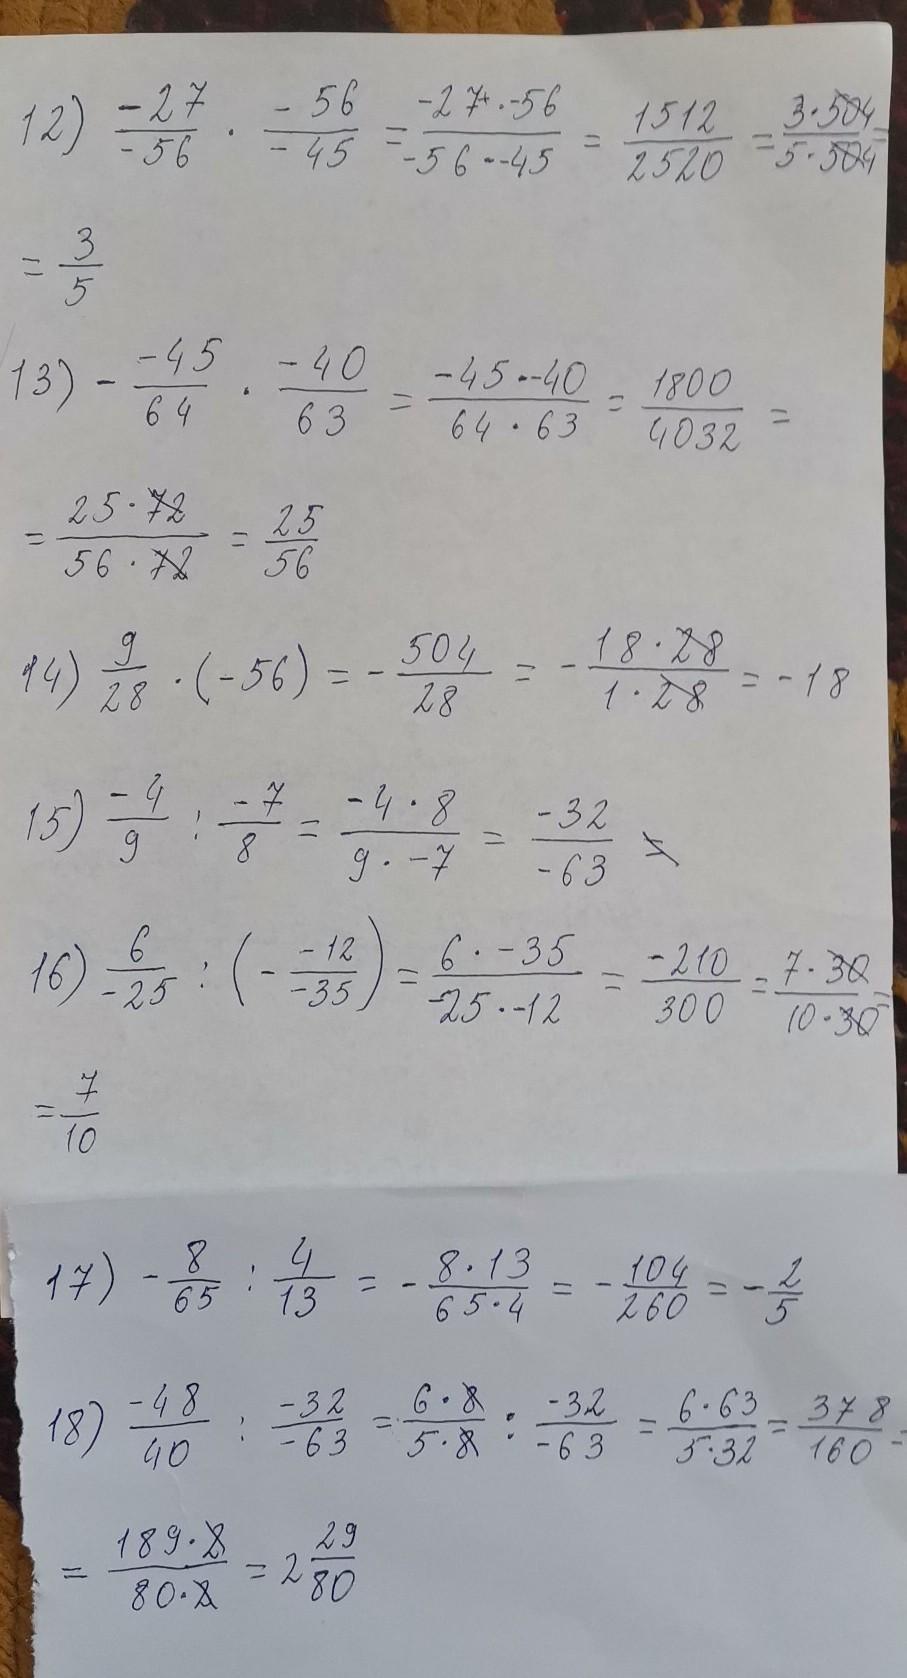 12) -27/-56 · -56/-45 = -27·-56/-56·-45 = 1512/2520 = 3·504/5·504 =
= 3/5
13) - -45/64 · -40/63 = -45·-40/64·63 = 1800/4032 =
= 25·72/56·72 = 25/56
14) 9/28 · (-56) = - 504/28 = - 18·28/1·28 = -18
15) -4/9 : -7/8 = -4·8/9·-7 = -32/-63 =
16) 6/-25 : (- -12/-35) = 6·-35/-25·-12 = -210/300 = 7·30/10·30 =
= 7/10
17) - 8/65 : 4/13 = - 8·13/65·4 = - 104/260 = - 2/5
18) -48/40 : -32/-63 = 6·8/5·8 : -32/-63 = 6·63/5·32 = 378/160 =
= 189·2/80·2 = 2 29/80